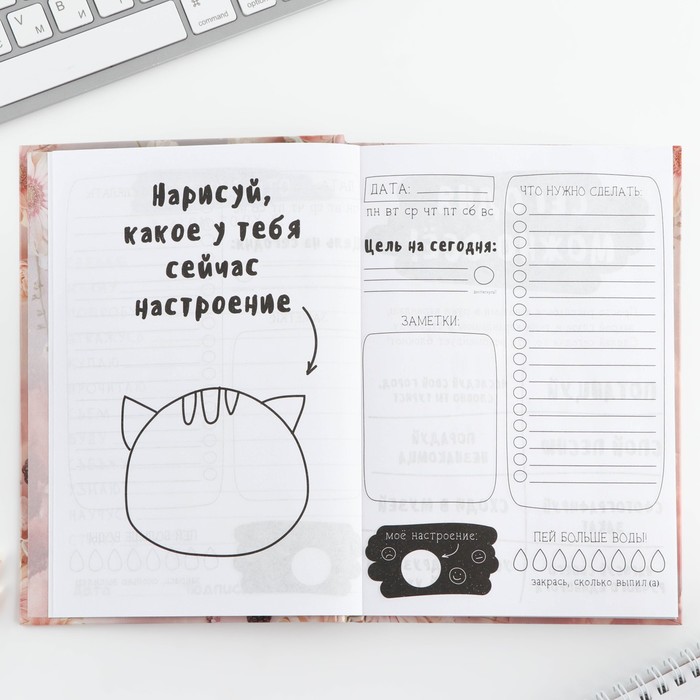 Нарисуй,
какое у тебя
сейчас
настроение
ДАТА:
пн вт ср чт пт сб вс
Цель на сегодня:
ЗАМЕТКИ:
моё настроение:
ЧТО НУЖНО СДЕЛАТЬ:
ПЕЙ БОЛЬШЕ ВОДЫ!
закрась, сколько выпил(а)
command
option